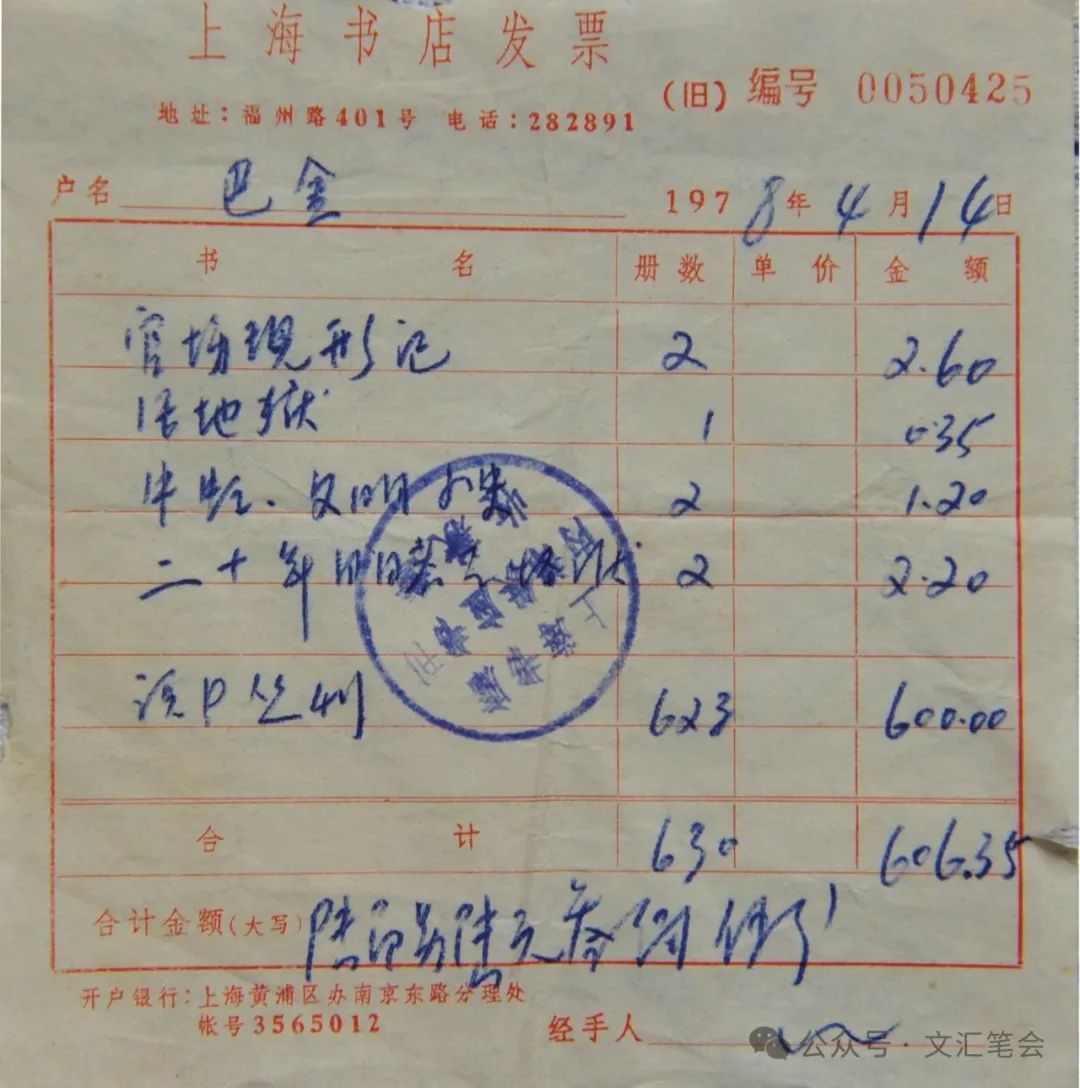 上海书店发票
(旧) 编号 0050425
地址：福州路401号 电话：282891
户名 巴金 1978年4月14日
书名 册数 单价 金额
官场现形记 2 2.60
活地狱 1 0.35
文明小史 2 1.20
二十年目睹 2 2.20
丛刊 623 600.00
合计 630 606.35
合计金额(大写) 陆百零陆元叁角伍分
开户银行：上海黄浦区办南京东路分理处
帐号3565012
经手人
公众号·文汇笔会